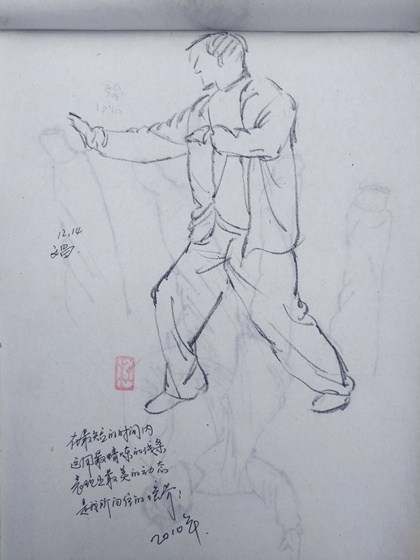 12.14
文昌.
在最短的时间内
运用最精炼的线条
表现出最美的动态
是我所向往的境界!
2010年.